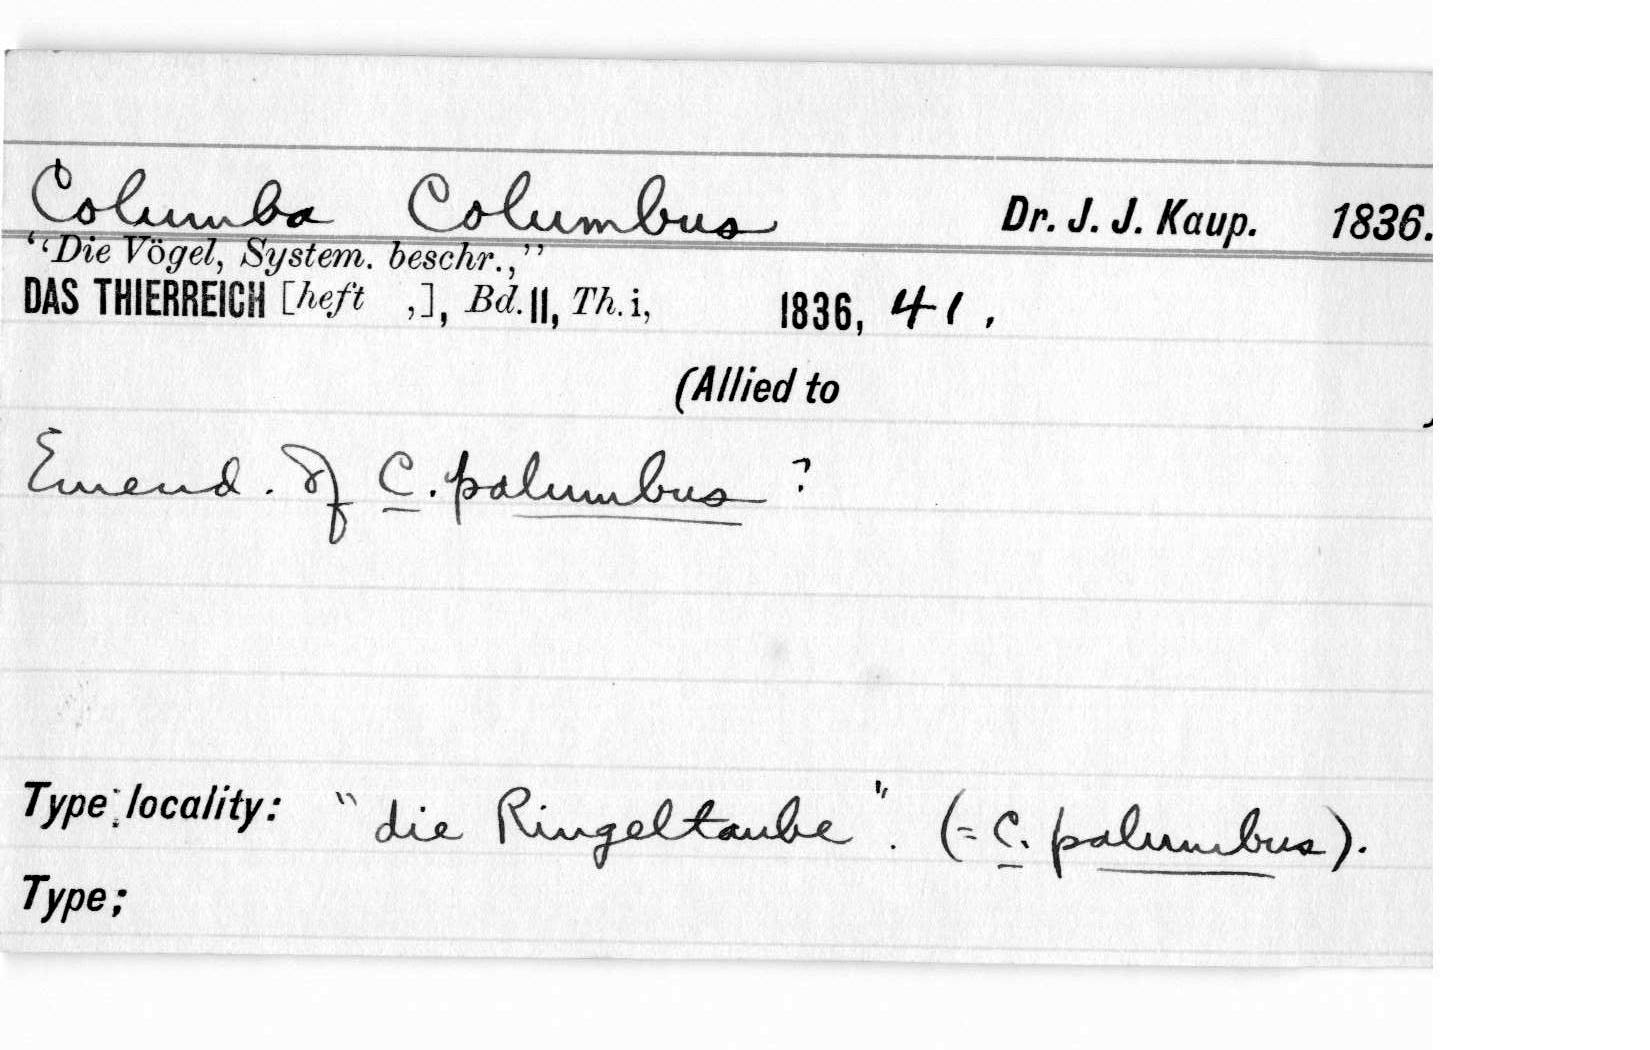 Columba Columbus Dr. J. J. Kaup. 1836.
“‘Die Vögel, System. beschr.,”
DAS THIERREICH [heft ,], Bd. II, Th. i, 1836, 41.
(Allied to )
Emend. of C. palumbus ?
Type locality: "die Ringeltaube". (= C. palumbus).
Type;